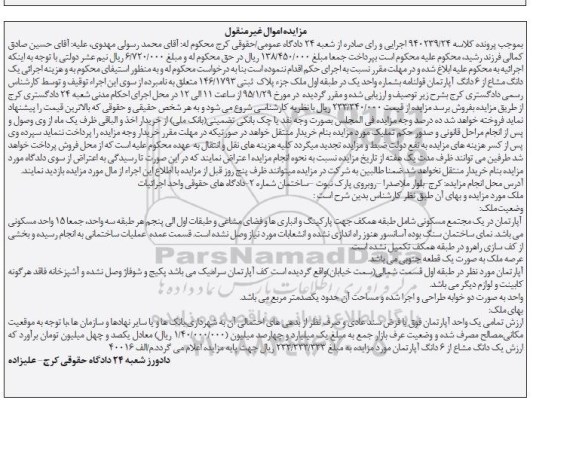 مزایده اموال غیر منقول
بموجب پرونده کلاسه ۹۴۰۲۳۹/۲۴ اجرایی و رای صادره از شعبه ۲۴ دادگاه عمومی/حقوقی کرج محکوم له: آقای محمد رسولی مهدوی، علیه: آقای حسین صادق
کمالی فرزند رشید، محکوم علیه محکوم است بپرداخت جمعا مبلغ ۱۳۸/۴۵۰/۰۰۰ ریال در حق محکوم له و مبلغ ۶/۷۲۰/۰۰۰ ریال نیم عشر دولتی با توجه به اینکه
اجرائیه به محکوم علیه ابلاغ شده و در مهلت مقرر نسبت به اجرای حکم اقدام ننموده است بنا به درخواست محکوم له و به منظور استیفای محکوم به و هزینه اجرائی یک
دانگ مشاع از ۶ دانگ آپارتمان قولنامه بشماره واحد یک در طبقه اول ملک جزء پلاک ثبتی ۱۴۶/۱۷۹۳ متعلق به نامبرده از سوی این اجراء توقیف و توسط کارشناس
رسمی دادگستری کرج بشرح زیر توصیف و ارزیابی شده و مقرر گردید در مورخ ۹۵/۱/۲۹ از ساعت ۱۱ الی ۱۲ در محل اجرای احکام مدنی شعبه ۲۴ دادگستری کرج
از طریق مزایده بفروش برسد مزایده از قیمت ریال با نظریه کارشناسی شروع می شود و به هر شخص حقیقی و حقوقی که بالاترین قیمت را پیشنهاد
نماید فروخته خواهد شد ده درصد وجه مزایده فی المجلس بصورت وجه نقد یا چک بانکی تضمینی (بانک ملی) از خریدار اخذ و الباقی ظرف یک ماه از وی وصول و
پس از انجام مراحل قانونی و صدور حکم تملیک مورد مزایده بنام خریدار منتقل خواهد در صورتیکه در مهلت مقرر خریدار وجه مزایده را پرداخت ننماید سپرده وی
پس از کسر هزینه های مزایده به نفع دولت ضبط و مزایده تجدید میگردد کلیه هزینه های نقل و انتقال به عهده محکوم علیه است که از محل فروش پرداخت خواهد
شد طرفین می توانند ظرف مدت یک هفته از تاریخ مزایده نسبت به نحوه انجام مزایده اعتراض نمایند که در این صورت تا رسیدگی به اعتراض از سوی دادگاه مورد
مزایده بنام خریدار منتقل نخواهد شد ضمنا طالبین به شرکت در مزایده میتوانند ظرف پنج روز قبل از مزایده با اطلاع این اجراء از مال مورد مزایده بازدید نمایند.
آدرس محل انجام مزایده: کرج -بلوار ملاصدرا -روبروی پارک نبوت -ساختمان شماره ۲ -دادگاه های حقوقی واحد اجرائیات
ملک مورد مزایده و بهای آن طبق نظر کارشناس بدین شرح است:
وضعیت ملک:
آپارتمان در یک مجتمع مسکونی شامل طبقه همکف جهت پارکینگ و انباری ها و فضای مشاعی و طبقات اول الی پنجم هر طبقه سه واحد، جمعا ۱۵ واحد مسکونی
می باشد. نمای ساختمان سنگ بوده آسانسور هنوز راه اندازی نشده و انشعابات مورد نیاز وصل نشده است. قسمت عمده عملیات ساختمانی به انجام رسیده و بخشی
از کف سازی راهرو در طبقه همکف تکمیل نشده است.
عرصه ملک به صورت یک قطعه جنوبی می باشد.
آپارتمان مورد نظر در طبقه اول قسمت شمالی(سمت خیابان)واقع گردیده است کف آپارتمان سرامیک می باشد پکیج و شوفاژ وصل نشده و آشپزخانه فاقد هرگونه
کابینت و لوازم دیگر می باشد.
واحد به صورت دو خوابه طراحی و اجرا شده و مساحت آن حدود یکصد متر مربع می باشد.
بهای ملک:
ارزش تمامی یک واحد آپارتمان فوق با فرض سند عادی و صرف نظر از بدهی های احتمالی آن به شهرداری،بانک ها و یا سایر نهادها و سازمان ها ،با توجه به موقعیت
مکانی،مصالح مصرف شده و وضعیت عرف بازار جمع به مبلغ یک میلیارد و چهارصد میلیون (۱/۴۰۰/۰۰۰/۰۰۰ ریال) معادل یکصد و چهل میلیون تومان برآورد که
ارزش یک دانگ مشاع از ۶ دانگ آپارتمان مورد مزایده به مبلغ ۲۳۳/۳۳۳/۳۳۳ ریال جهت پایه مزایده اعلام می گردد.م/الف ۴۰۰۱۶
دادورز شعبه ۲۴ دادگاه حقوقی کرج- علیزاده
ParsNamadData